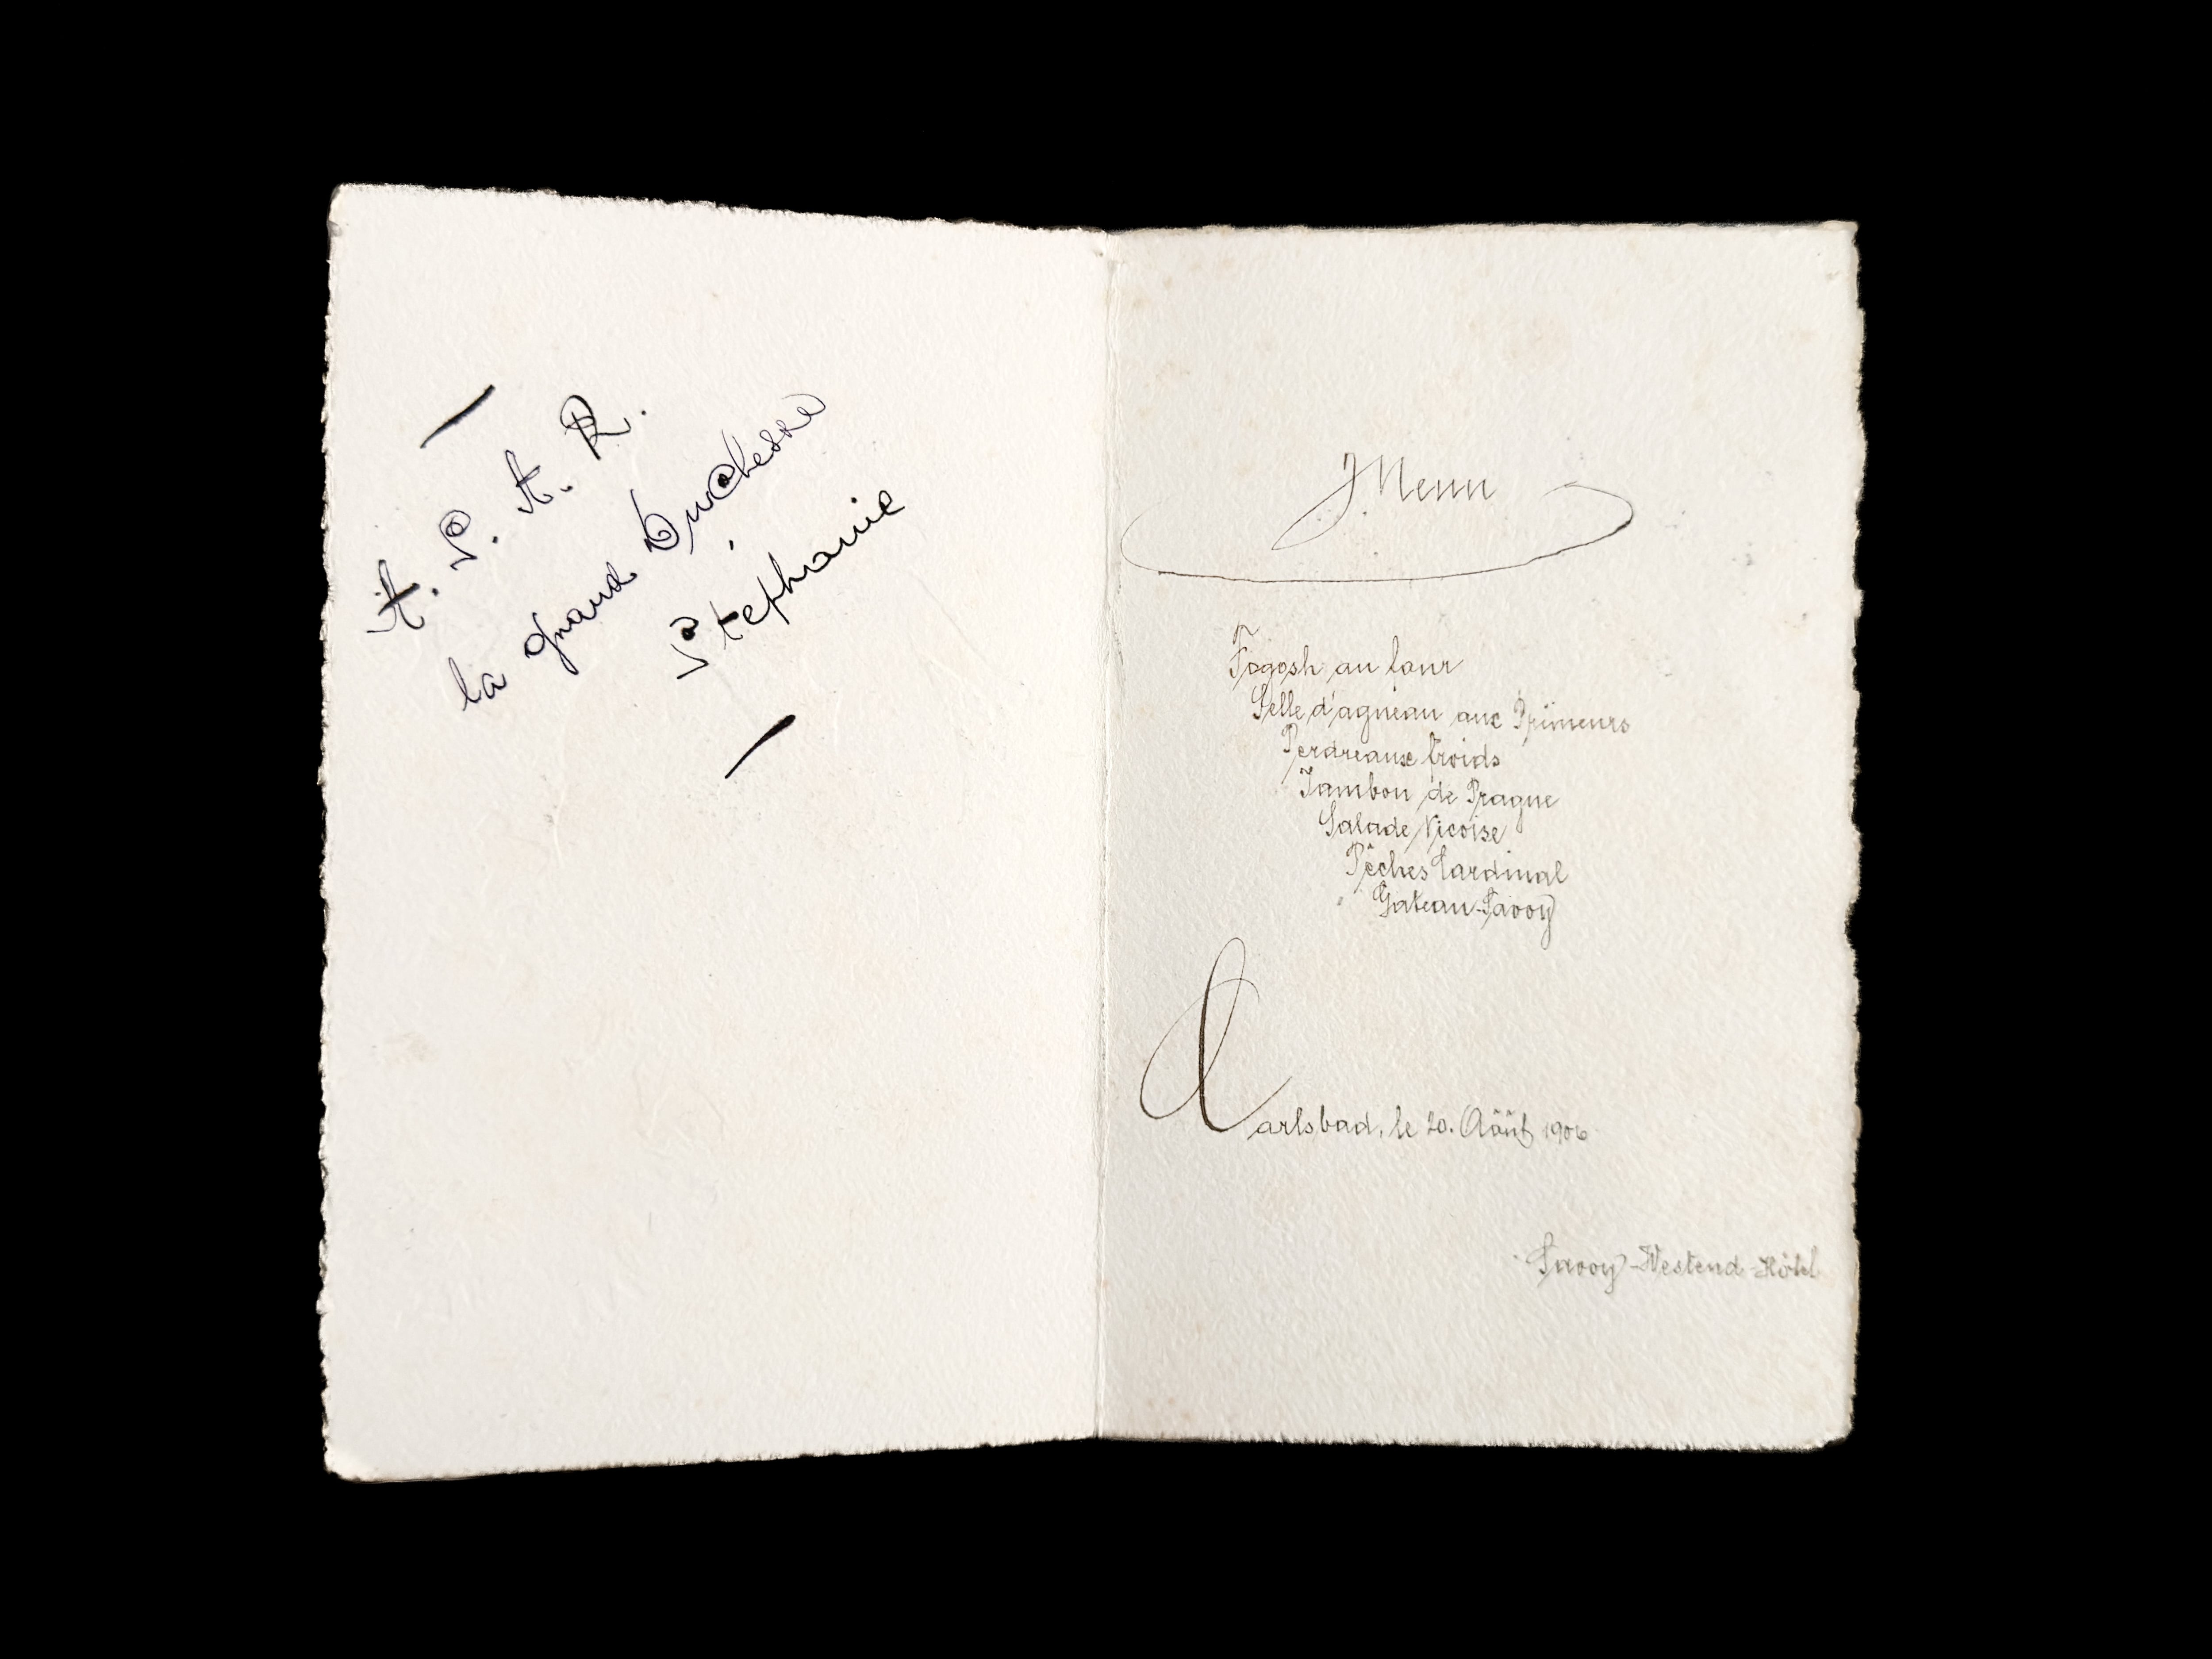 A. S. A. R.
la grand Duchesse
Stephanie
Menu
Fogosh au four
Selle d'agneau aux Primeurs
Perdreaux froids
Jambon de Prague
Salade Nicoise
Pêches Cardinal
Gateau-Savoy
Carlsbad, le 20. Août 1906
Savoy-Westend-Hôtel